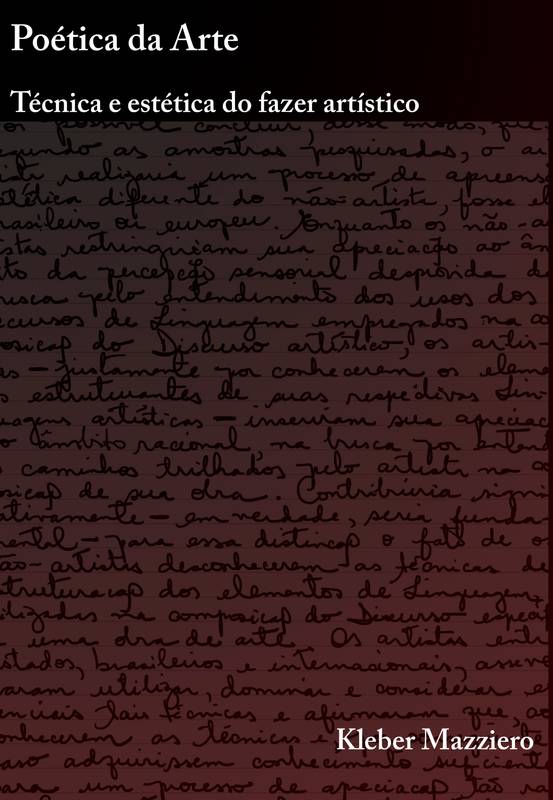 Poética da Arte
Técnica e estética do fazer artístico
possível concluir, desse modo, que
segundo as amostras pesquisadas, o
realizaria um processo de apreens
diferente do não-artista, fosse el
brasileiro ou europeu. Enquanto os não-a
stas restringiriam sua apreciação ao âm
ito da percepção sensorial desprovida d
usca pelo entendimento dos usos dos
cursos de Linguagem empregados na co
osição do Discurso artístico, os artis-
as — justamente por conhecerem os eleme
s estruturantes de suas respectivas Lin-
uagens artísticas — inseririam sua apreciaç
o âmbito racional, na busca por enten
caminhos trilhados pelo artista na
osição de sua obra. Contribuiria signi
ativamente — em verdade, seria funda
ental — para essa distinção o fato de o
ão-artistas desconhecerem as técnicas de
struturação dos elementos de Linguagem
ilizadas na composição do Discurso
uma obra de arte. Os artistas entre
stados, brasileiros e internacionais, asseve
aram utilizar, dominar e considerar
enciais tais técnicas e afirmaram que,
onhecerem as técnicas e
aso adquirissem conhecimento suficient
ara um processo de apreciação tão
Kleber Mazziero